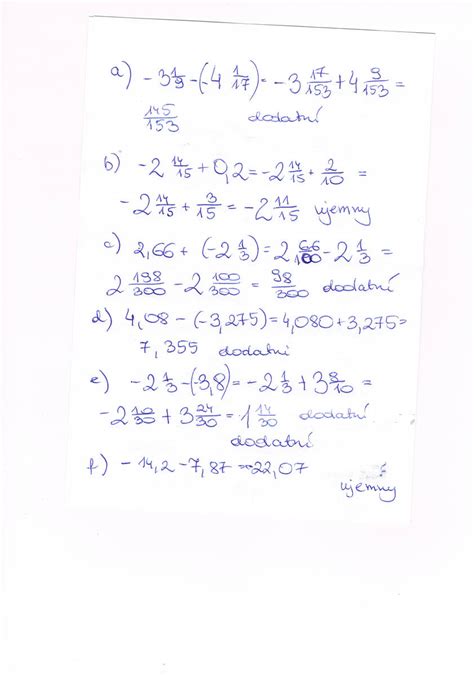 a) - 3 1/9 - (-4 1/17) = - 3 17/153 + 4 9/153 =
145/153 dodatni
b) - 2 14/15 + 0,2 = - 2 14/15 + 2/10 =
- 2 14/15 + 3/15 = - 2 11/15 ujemny
c) 2,66 + (- 2 1/3) = 2 66/100 - 2 1/3 =
2 198/300 - 2 100/300 = 98/300 dodatni
d) 4,08 - (-3,275) = 4,080 + 3,275 =
7,355 dodatni
e) - 2 1/3 - (-3,8) = - 2 1/3 + 3 8/10 =
- 2 10/30 + 3 24/30 = 1 14/30 dodatni
dodatni
f) - 14,2 - 7,87 = -22,07
ujemny